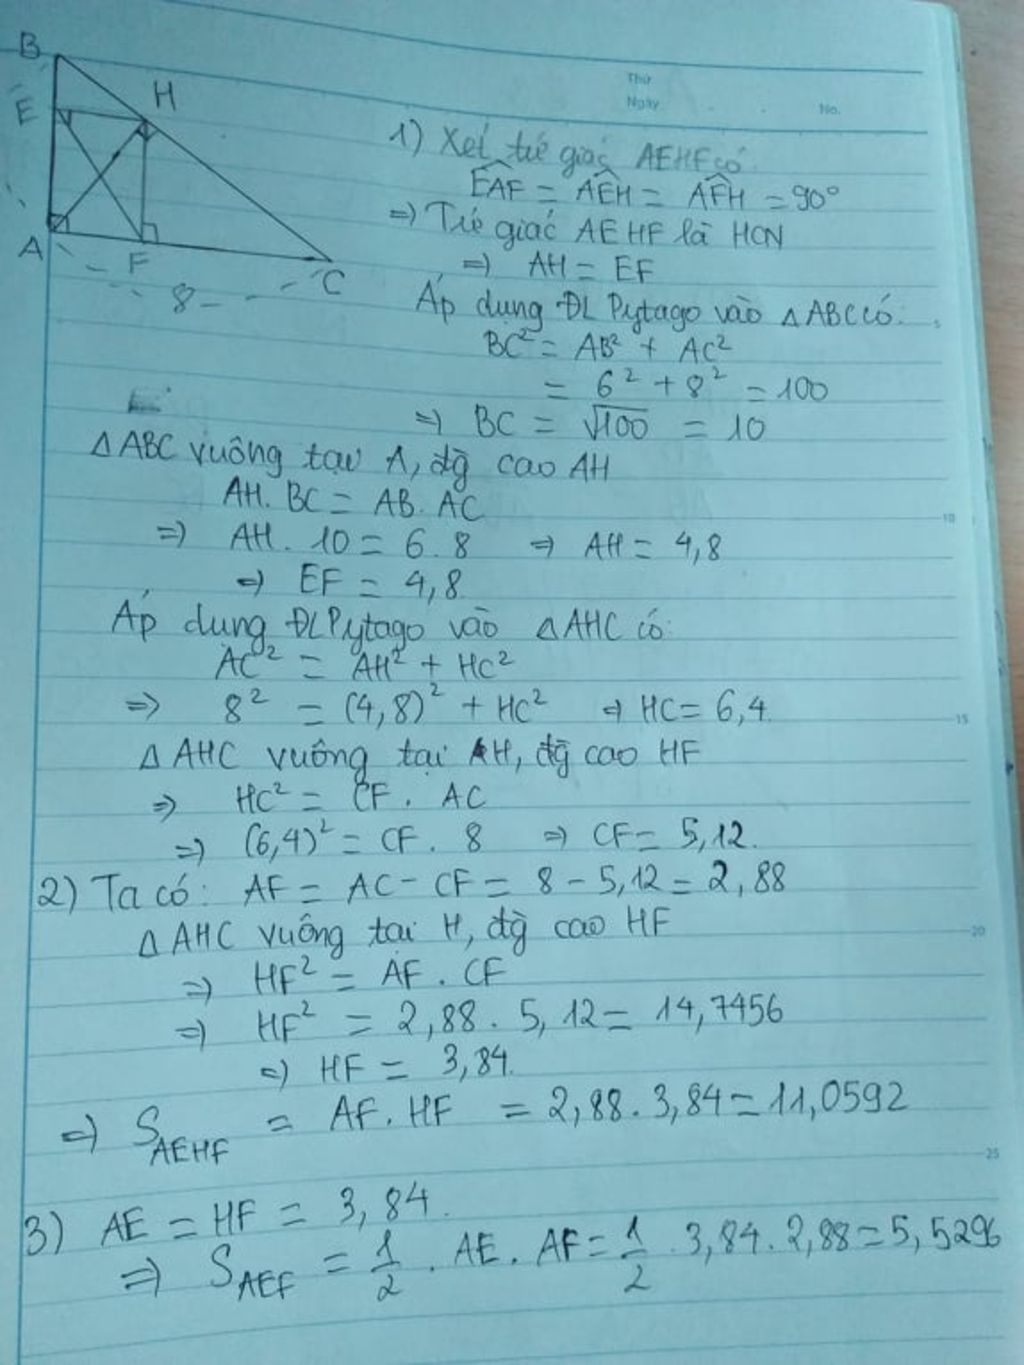 B
E
H
A
F
C
8
Thứ
Ngày
No.
1) Xét tứ giác AEHF có
EAF = AEH = AFH = 90°
=> Tứ giác AEHF là HCN
=> AH = EF
Áp dụng ĐL Pytago vào △ABC có:
BC² = AB² + AC²
= 6² + 8² = 100
=> BC = √100 = 10
△ABC vuông tại A, đg cao AH
AH. BC = AB. AC
=> AH. 10 = 6. 8 => AH = 4,8
=> EF = 4,8
Áp dụng ĐL Pytago vào △AHC có:
AC² = AH² + HC²
=> 8² = (4,8)² + HC² => HC = 6,4
△AHC vuông tại H, đg cao HF
=> HC² = CF. AC
=> (6,4)² = CF. 8 => CF = 5,12.
2) Ta có: AF = AC - CF = 8 - 5,12 = 2,88
△AHC vuông tại H, đg cao HF
=> HF² = AF. CF
=> HF² = 2,88. 5,12 = 14,7456
=> HF = 3,84.
=> S AEHF = AF. HF = 2,88. 3,84 = 11,0592
3) AE = HF = 3,84.
=> S AEF = 1/2. AE. AF = 1/2. 3,84. 2,88 = 5,5296
5
10
15
20
25